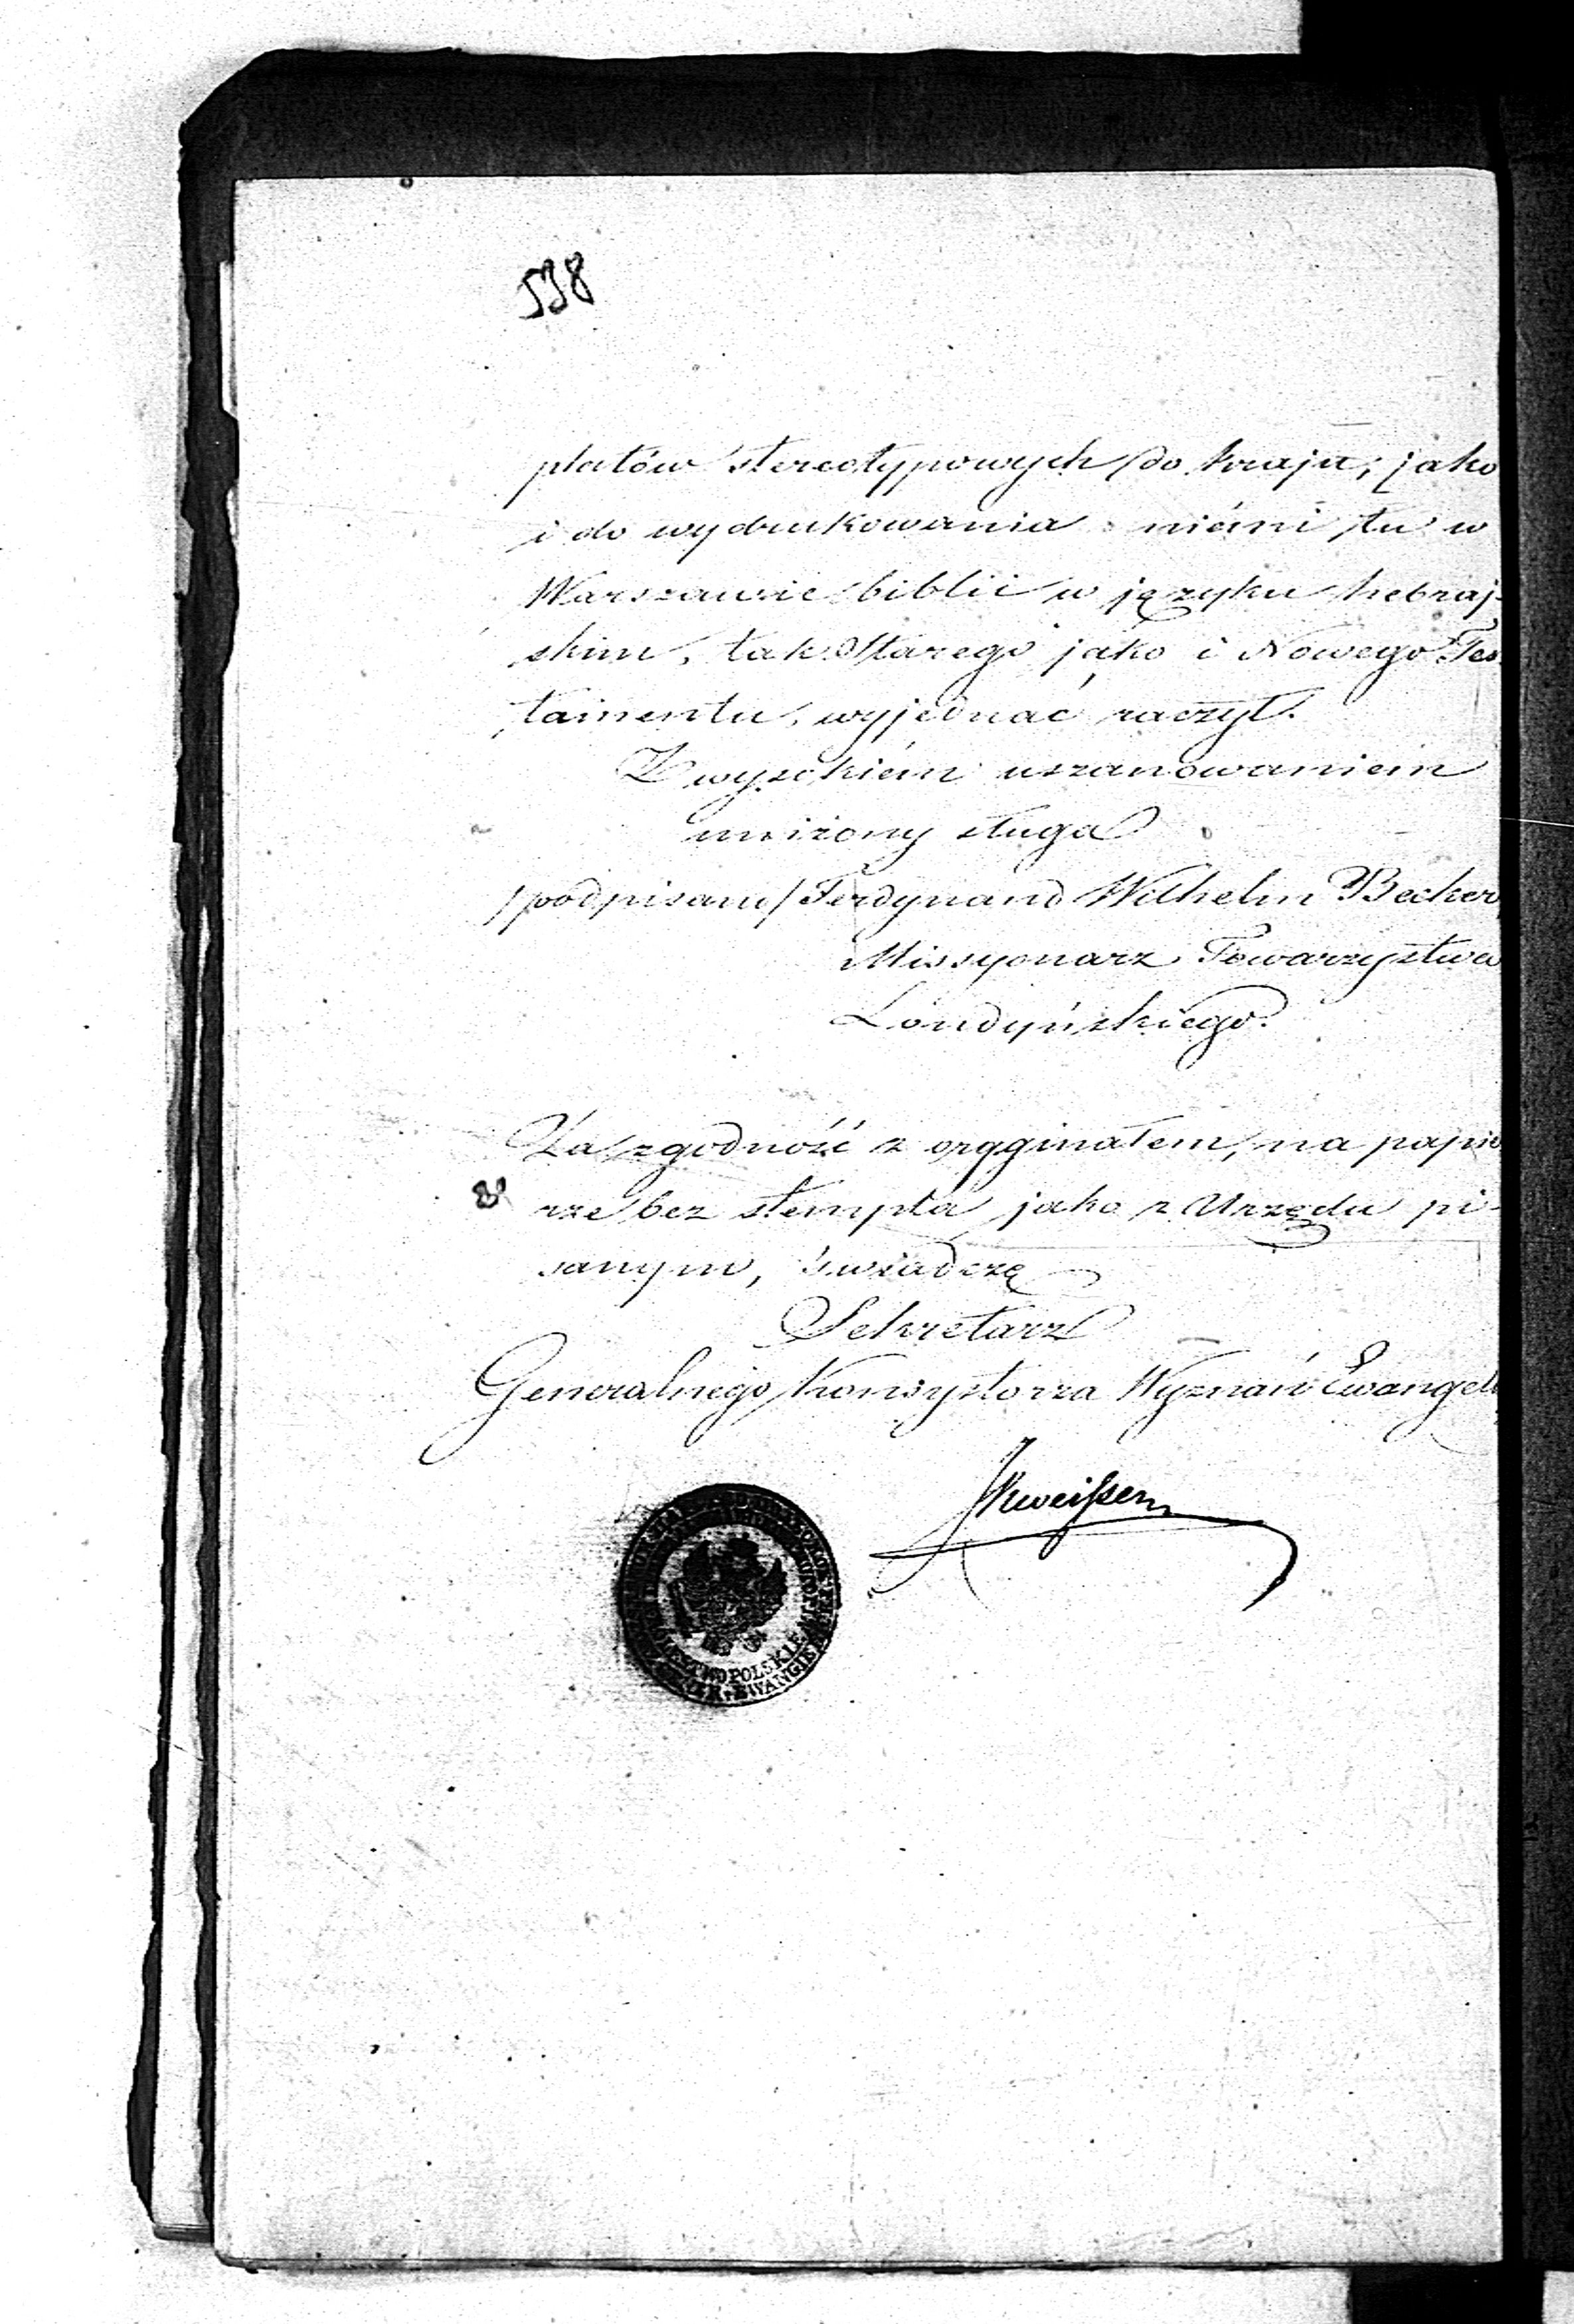 538
platów stereotypowych do kraju; jako
i do wydrukowania niémi tu w
Warszawie biblii w języku hebraj-
skim, tak Starego jako i Nowego Tes
tamentu, wyjednać raczył.
Z wysokiém uszanowaniem
uniżony sługa
/podpisano/ Ferdynand Wilhelm Becker
Missyonarz Towarzystwa
Londyńskiego.
Za zgodność z orygginałem, na papie
rze bez stempla jako z Urzędu pi-
sanym, świadczę
Sekretarz
Generalnego Konsystorza Wyznań Ewangeli
POLSKIE